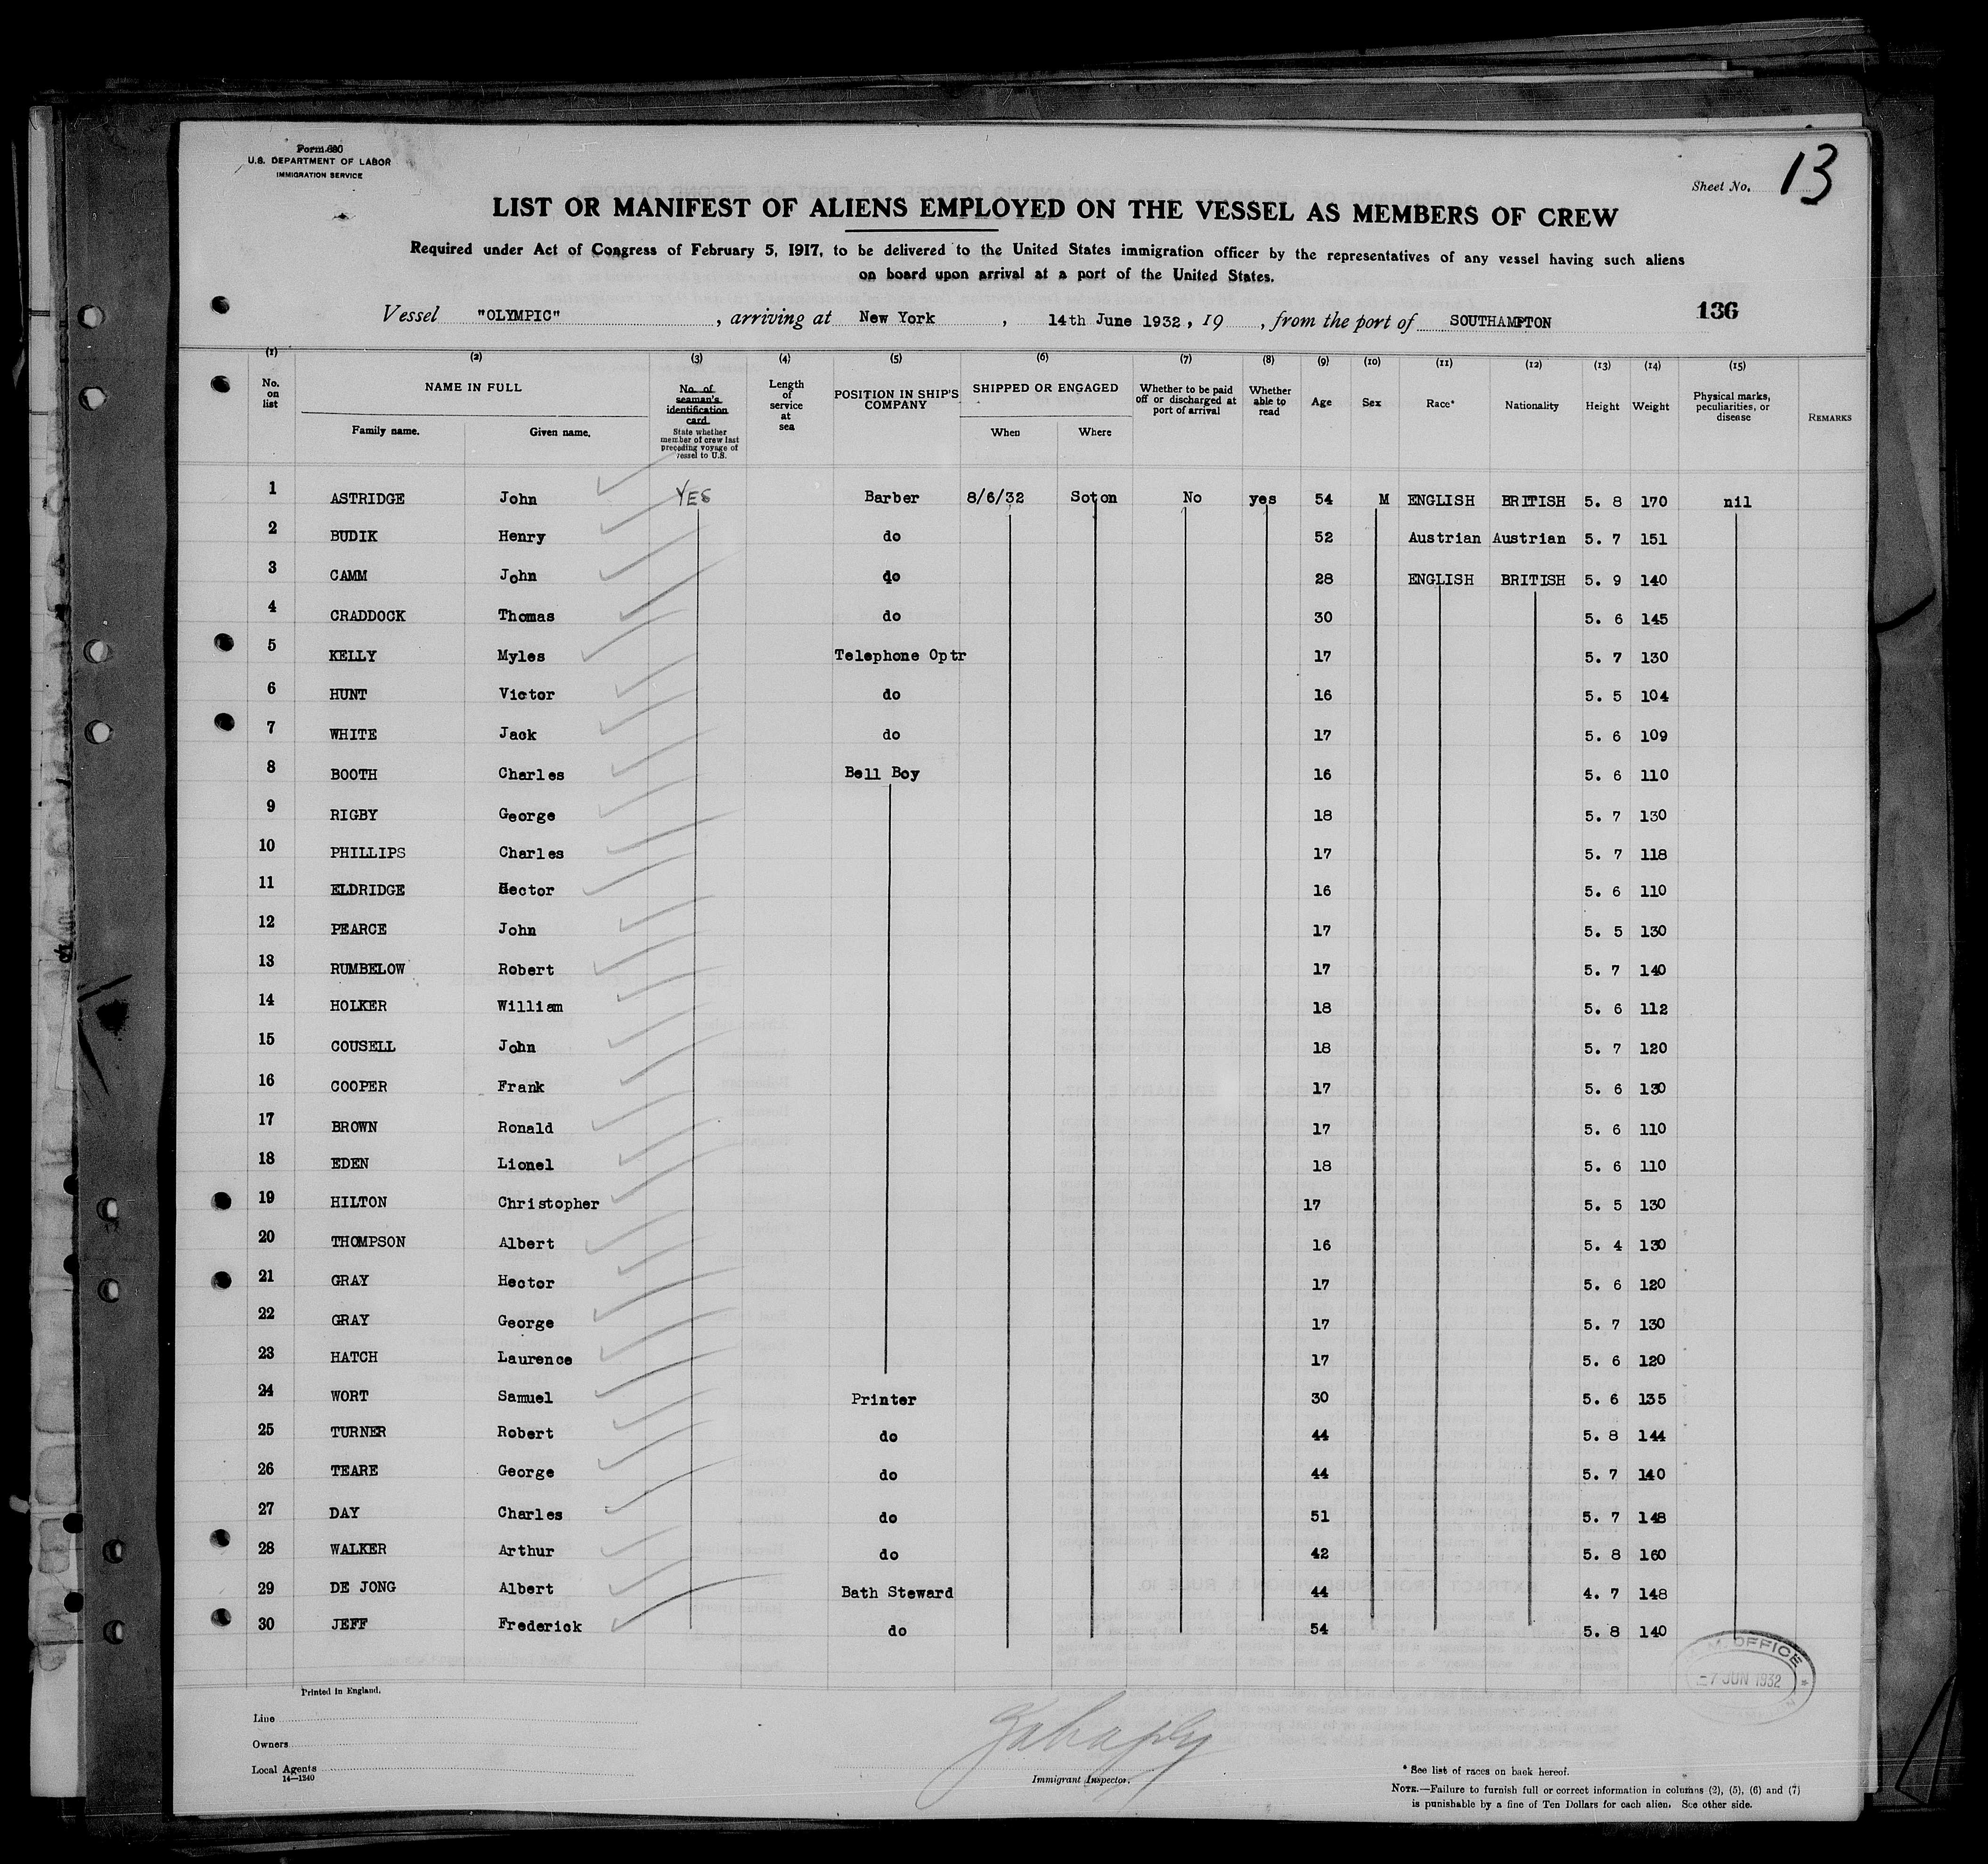 Form 680
U.S. DEPARTMENT OF LABOR
IMMIGRATION SERVICE
Sheet No. 13
LIST OR MANIFEST OF ALIENS EMPLOYED ON THE VESSEL AS MEMBERS OF CREW
Required under Act of Congress of February 5, 1917, to be delivered to the United States immigration officer by the representatives of any vessel having such aliens
on board upon arrival at a port of the United States.
136
Vessel "OLYMPIC", arriving at New York, 14th June 1932, 19 , from the port of SOUTHAMPTON
(1) (2) (3) (4) (5) (6) (7) (8) (9) (10) (11) (12) (13) (14) (15)
No. on list NAME IN FULL Family name. Given name. No. of seaman's identification card. State whether member of crew last preceding voyage of vessel to U.S. Length of service at sea POSITION IN SHIP'S COMPANY SHIPPED OR ENGAGED When Where Whether to be paid off or discharged at port of arrival Whether able to read Age Sex Race* Nationality Height Weight Physical marks, peculiarities, or disease REMARKS
1 ASTRIDGE John YES Barber 8/6/32 Soton No yes 54 M ENGLISH BRITISH 5. 8 170 nil
2 BUDIK Henry do 52 Austrian Austrian 5. 7 151
3 CAMM John do 28 ENGLISH BRITISH 5. 9 140
4 CRADDOCK Thomas do 30 5. 6 145
5 KELLY Myles Telephone Optr 17 5. 7 130
6 HUNT Victor do 16 5. 5 104
7 WHITE Jack do 17 5. 6 109
8 BOOTH Charles Bell Boy 16 5. 6 110
9 RIGBY George 18 5. 7 130
10 PHILLIPS Charles 17 5. 7 118
11 ELDRIDGE Hector 16 5. 6 110
12 PEARCE John 17 5. 5 130
13 RUMBELOW Robert 17 5. 7 140
14 HOLKER William 18 5. 6 112
15 COUSELL John 18 5. 7 120
16 COOPER Frank 17 5. 6 130
17 BROWN Ronald 17 5. 6 110
18 EDEN Lionel 18 5. 6 110
19 HILTON Christopher 17 5. 5 130
20 THOMPSON Albert 16 5. 4 130
21 GRAY Hector 17 5. 6 120
22 GRAY George 17 5. 7 130
23 HATCH Laurence 17 5. 6 120
24 WORT Samuel Printer 30 5. 6 135
25 TURNER Robert do 44 5. 8 144
26 TEARE George do 44 5. 7 140
27 DAY Charles do 51 5. 7 148
28 WALKER Arthur do 42 5. 8 160
29 DE JONG Albert Bath Steward 44 4. 7 148
30 JEFF Frederick do 54 5. 8 140
M. OFFICE
7 JUN 1932
Printed in England.
Line
Owners
Local Agents
14—1240
Immigrant Inspector.
* See list of races on back hereof.
NOTE.—Failure to furnish full or correct information in columns (2), (5), (6) and (7)
is punishable by a fine of Ten Dollars for each alien. See other side.